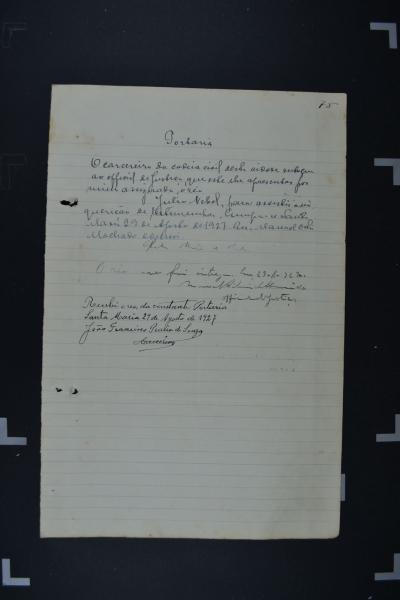 75
Portaria
O carcereiro da cadeia civil desta cidade entregue
ao official de justiça que este lhe apresentar por
mim assignado, o réo
Julio Nobel, para assistir a in
quirição de testemunhas. Cumpra-se. Santa
Maria 29 de Agosto de 1927. Eu, Manoel
Machado escrivão
O réo me foi entregue. Em
Official de Justiça
Recebi o réo da constante Portaria
Santa Maria 29 de Agosto de 1927
João Francisco de Souza
Carcereiro